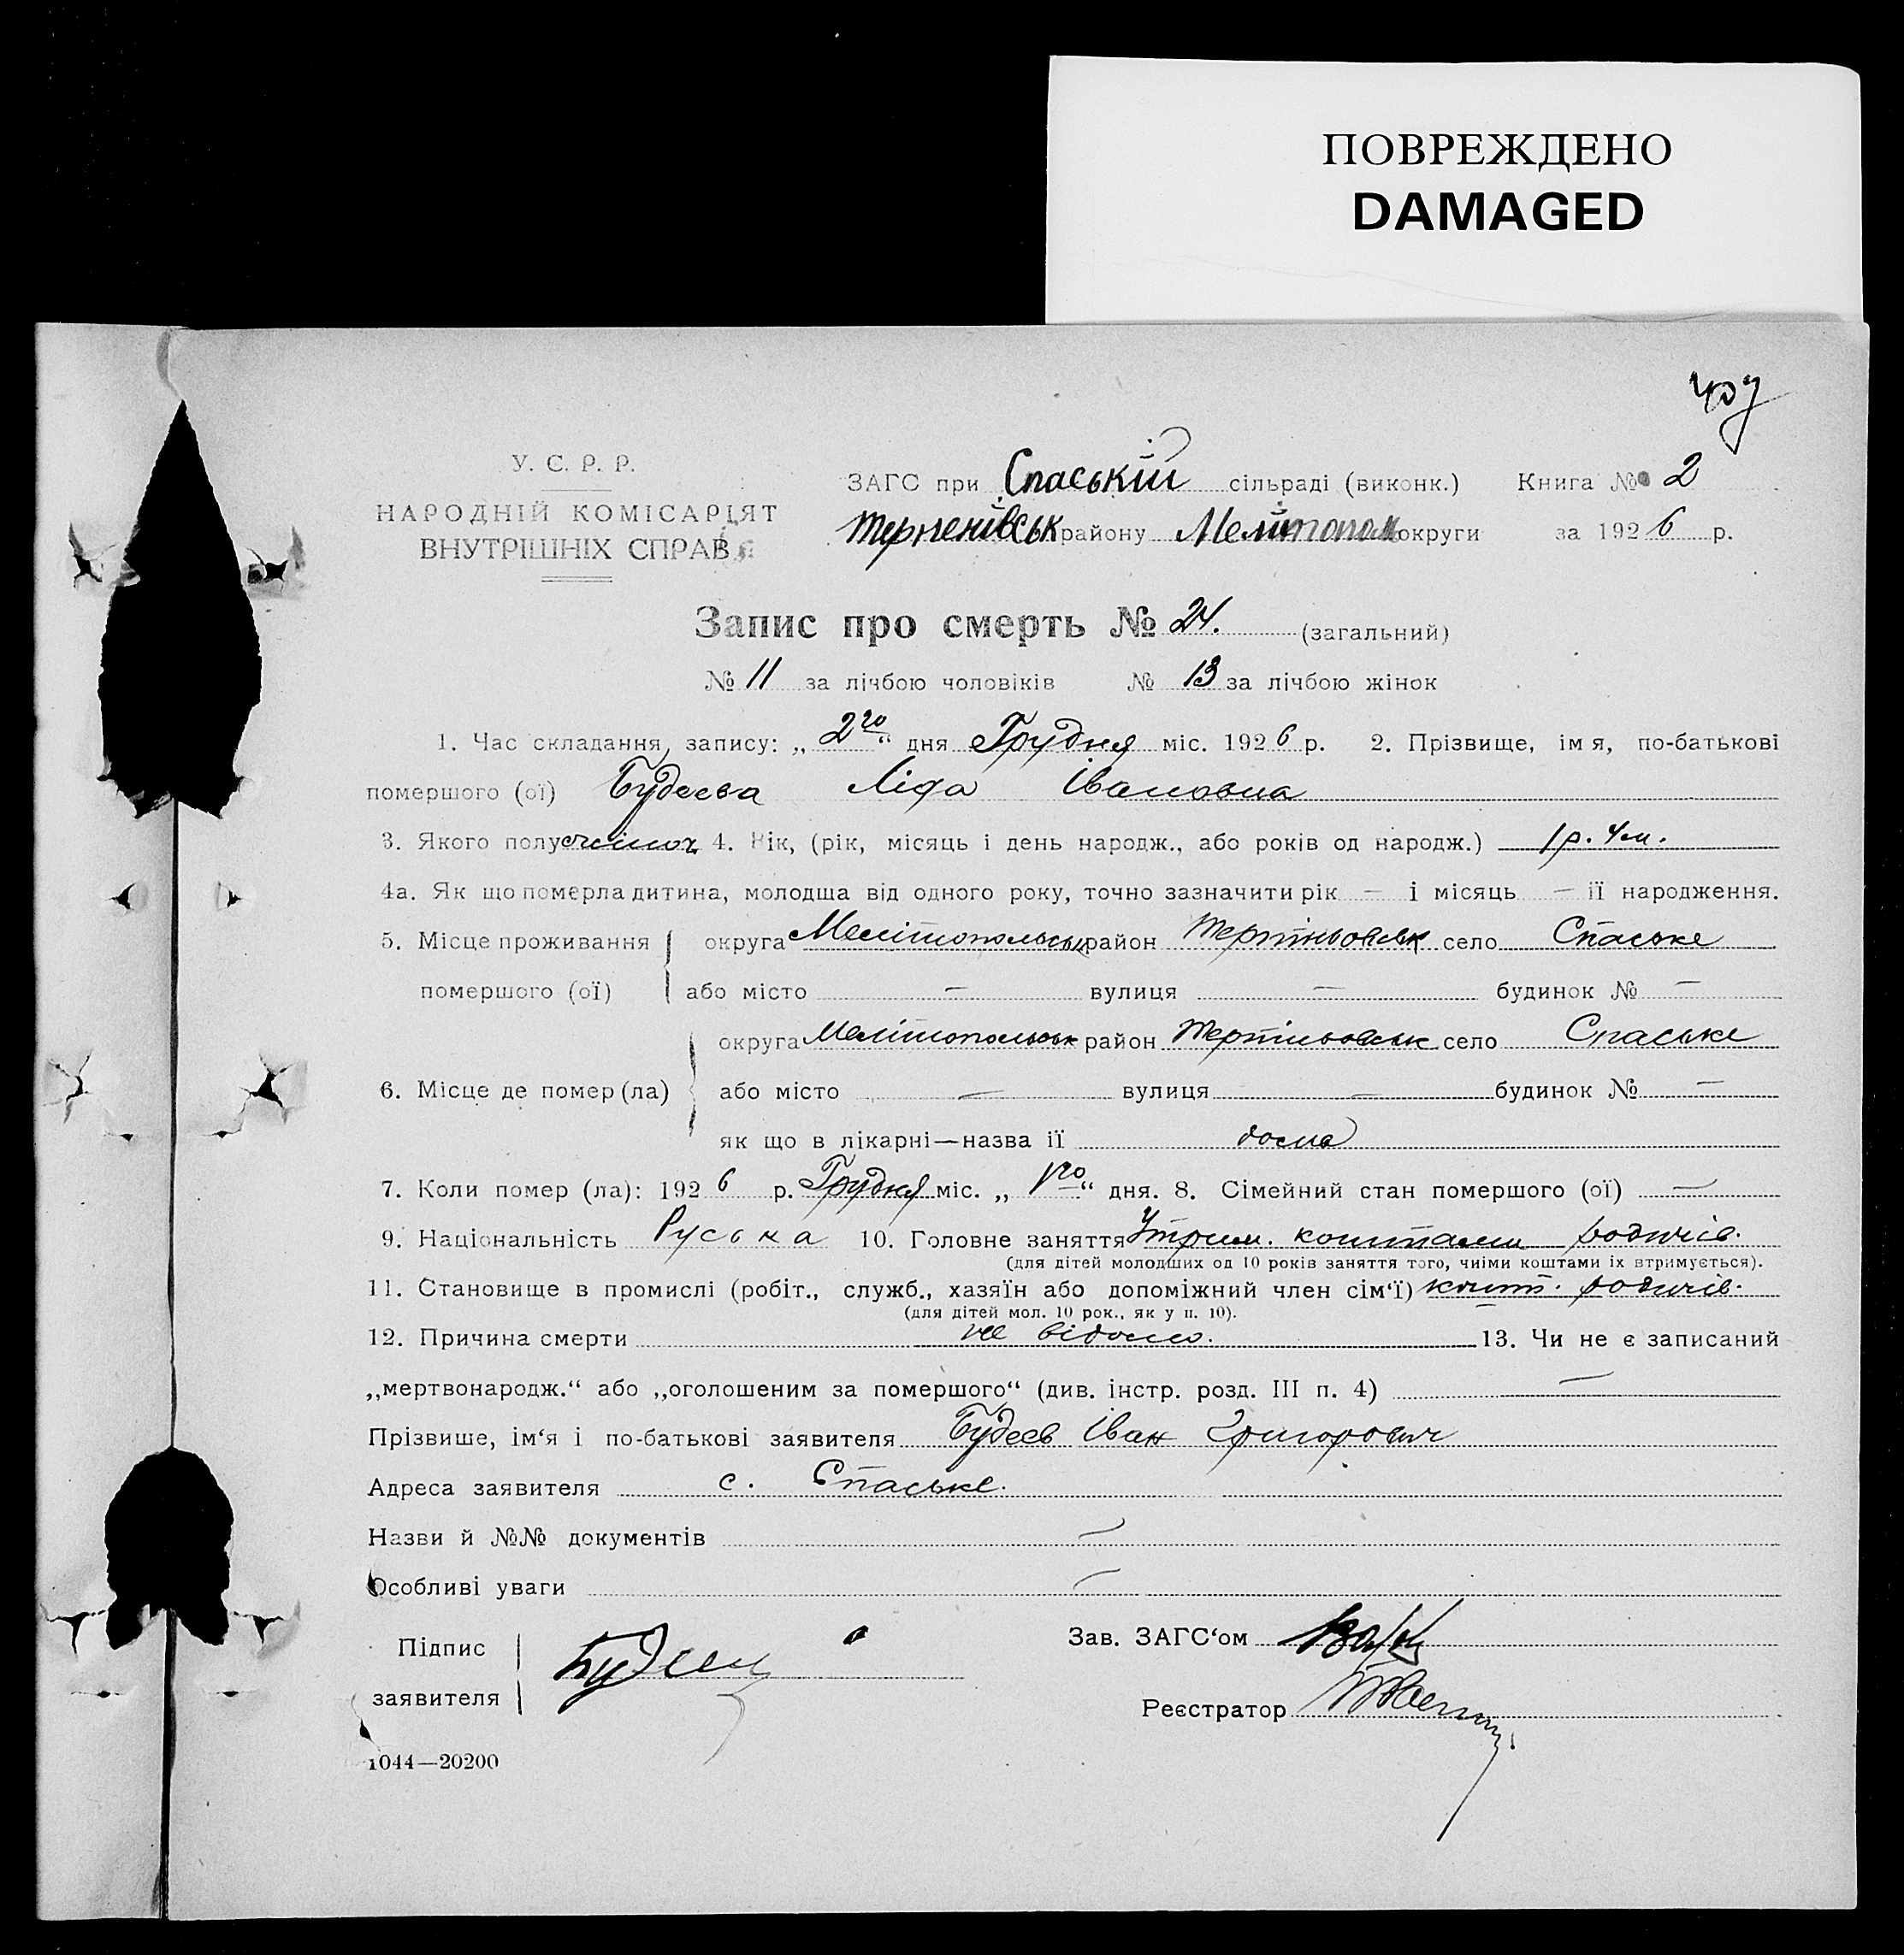 ПОВРЕЖДЕНО
DAMAGED
У. С. Р. Р.
НАРОДНІЙ КОМІСАРІЯТ
ВНУТРІШНІХ СПРАВ
ЗАГС при Спаській сільраді (виконк.) Книга № 2
району Мелітопол округи за 1926 р.
Запис про смерть № 24. (загальний)
№ 11 за лічбою чоловіків № 13 за лічбою жінок
1. Час складання запису: „2го“ дня Грудня міс. 1926 р. 2. Прізвище, імя, по-батькові
помершого (ої) Будеева Ліда Івановна
3. Якого полу 4. Вік, (рік, місяць і день народж., або років од народж.) 1 р. 4 м.
4а. Як що померла дитина, молодша від одного року, точно зазначити рік — і місяць — її народження.
5. Місце проживання округа Мелітопольськ район село Спаське
помершого (ої) або місто — вулиця — будинок № —
округа Мелітопольськ район село Спаське
6. Місце де помер (ла) або місто — вулиця — будинок № —
як що в лікарні—назва її дома
7. Коли помер (ла): 1926 р. Грудня міс. „1го“ дня. 8. Сімейний стан помершого (ої) —
9. Національність Руська 10. Головне заняття Утрим. коштами родичів.
(для дітей молодших од 10 років заняття того, чиїми коштами їх втримується).
11. Становище в промислі (робіт., служб., хазяїн або допоміжний член сім‘ї) кошт. родичів.
(для дітей мол. 10 рок., як у п. 10).
12. Причина смерти не відомо. 13. Чи не є записаний
„мертвонародж.“ або „оголошеним за помершого“ (див. інстр. розд. III п. 4) —
Прізвише, ім‘я і по-батькові заявителя Будеєв Іван Григорович
Адреса заявителя с. Спаське.
Назви й №№ документів —
Особливі уваги —
Підпис
Зав. ЗАГС‘ом
заявителя
Реєстратор
1044—20200